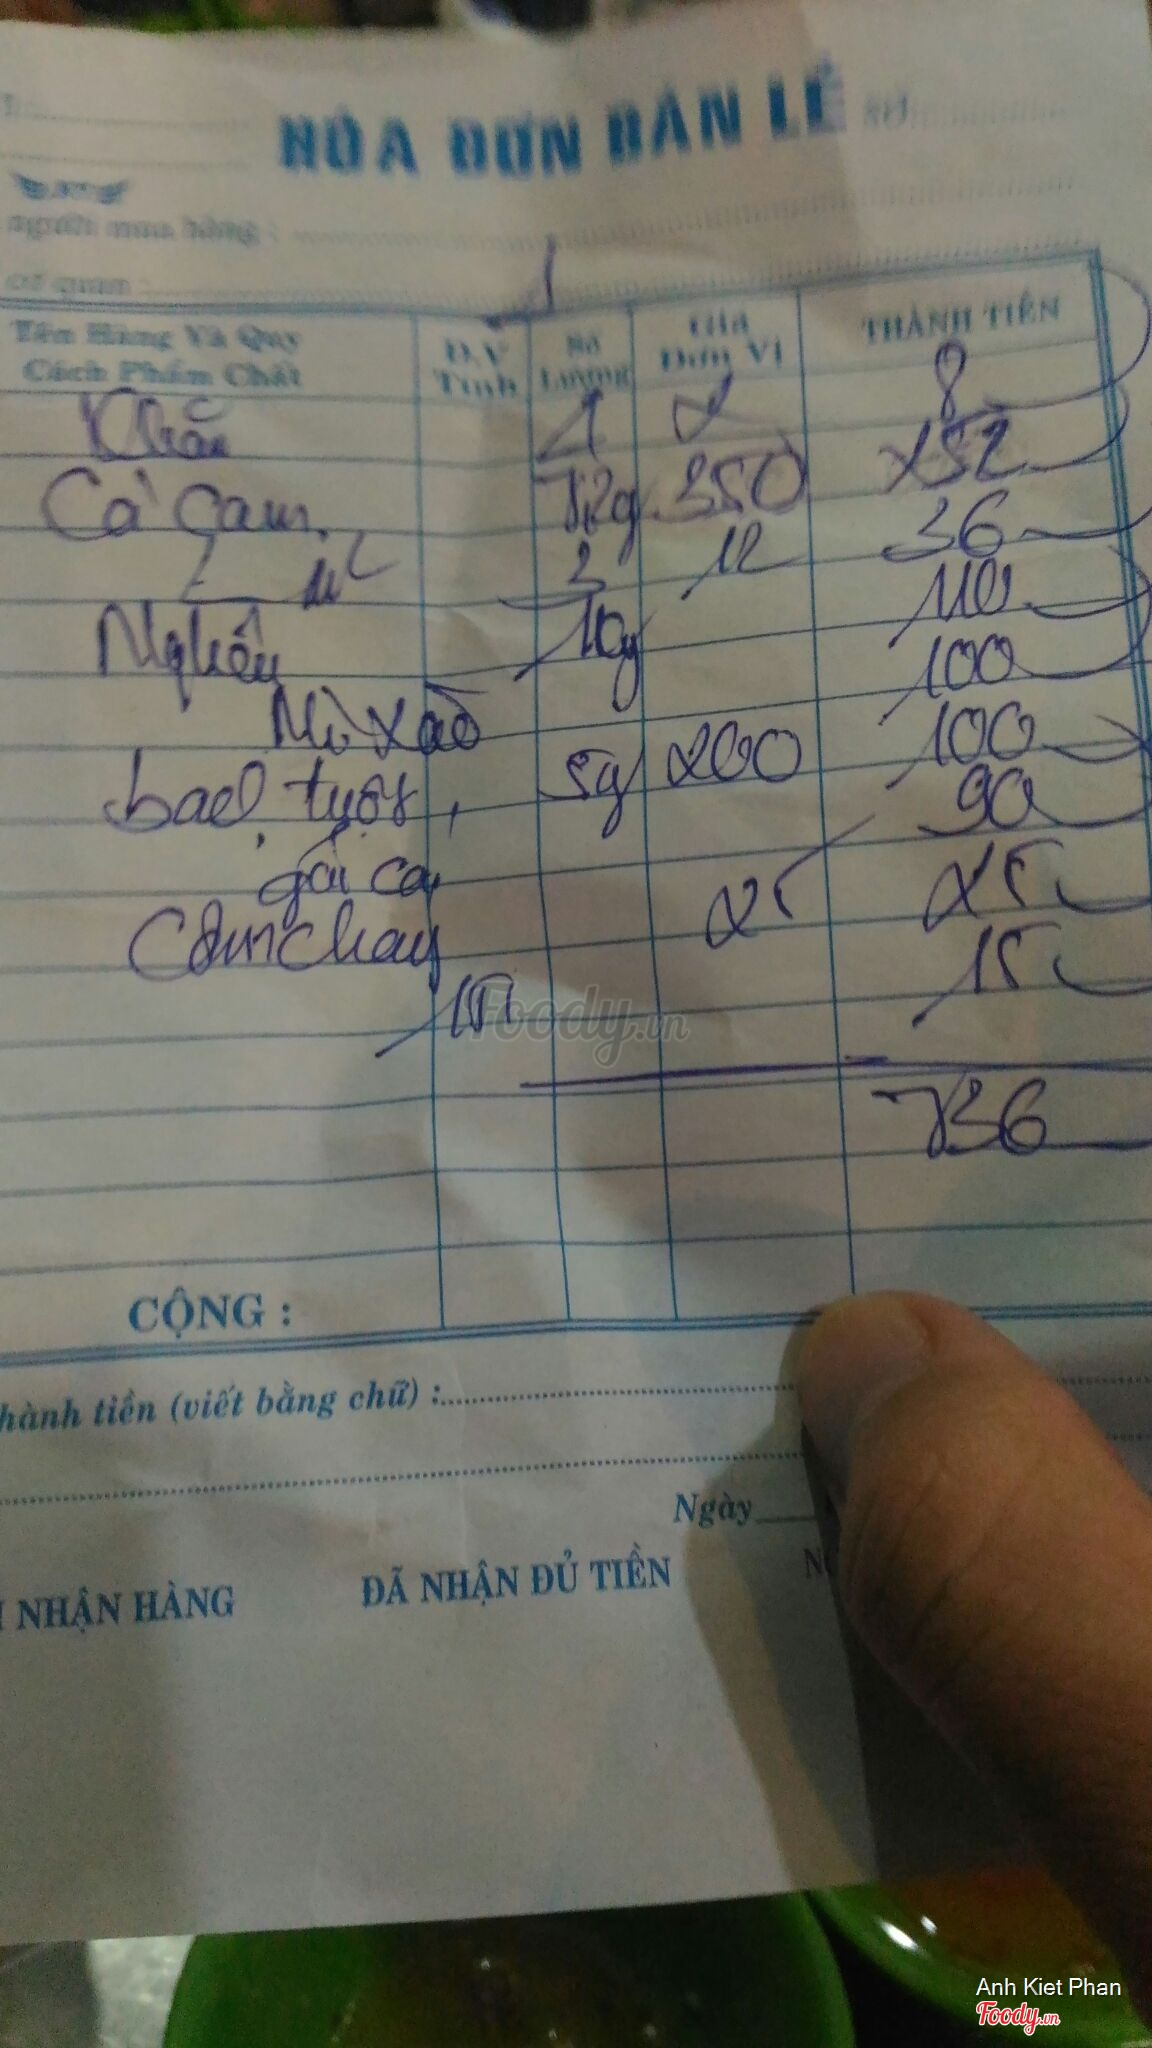 HÓA ĐƠN BÁN LẺ Số
người mua hàng :
cơ quan
Tên Hàng Và Quy Cách Phẩm Chất Đ.V Tính Số Lượng Giá Đơn Vị THÀNH TIỀN
Khăn 4 2 8
Cá cam 72g 350 252
3 12 36
Nghêu 10g 110
Mì xào 100
bạch tuộc 5g 200 100
gỏi cá 90
Cơm cháy 25 25
15
736
CỘNG :
hành tiền (viết bằng chữ) :
Ngày
I NHẬN HÀNG ĐÃ NHẬN ĐỦ TIỀN
Foody.vn
Anh Kiet Phan
Foody.vn